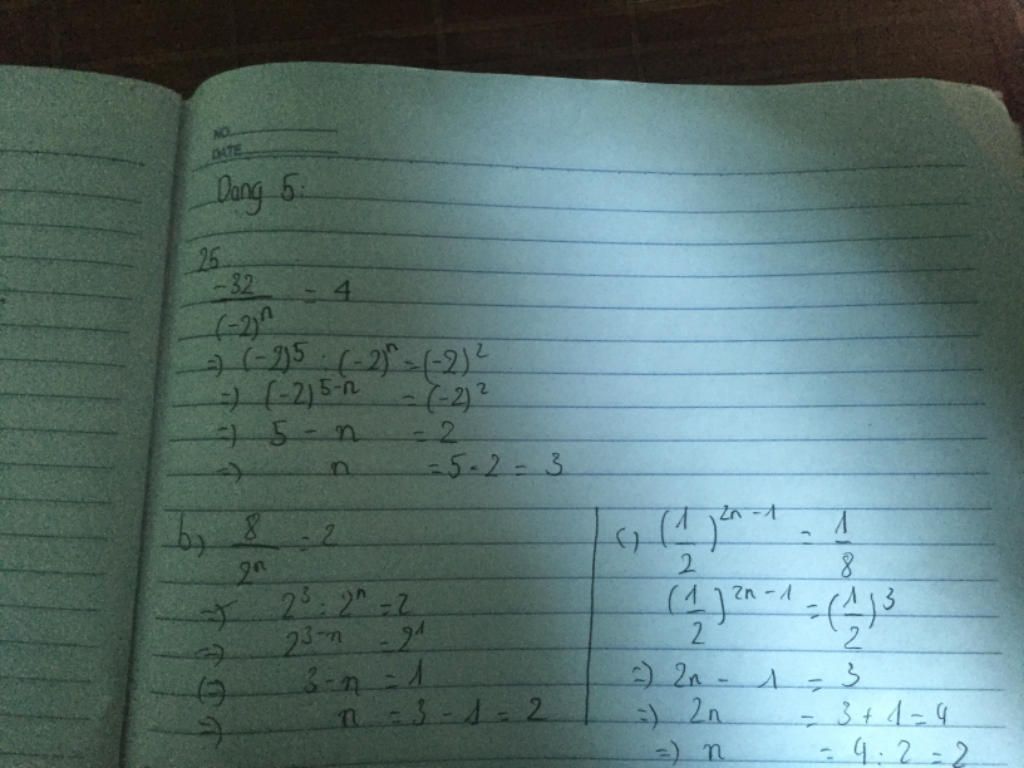 NO
DATE
Dạng 5:
25
-32/(-2)^n = 4
=) (-2)^5 : (-2)^n = (-2)^2
=) (-2)^{5-n} = (-2)^2
=) 5 - n = 2
=) n = 5-2 = 3
b) 8/2^n = 2
=) 2^3 : 2^n = 2
=) 2^{3-n} = 2^1
(=) 3-n = 1
=) n = 3 - 1 = 2
c) (1/2)^{2n-1} = 1/8
(1/2)^{2n-1} = (1/2)^3
=) 2n - 1 = 3
=) 2n = 3+1=4
=) n = 4:2=2